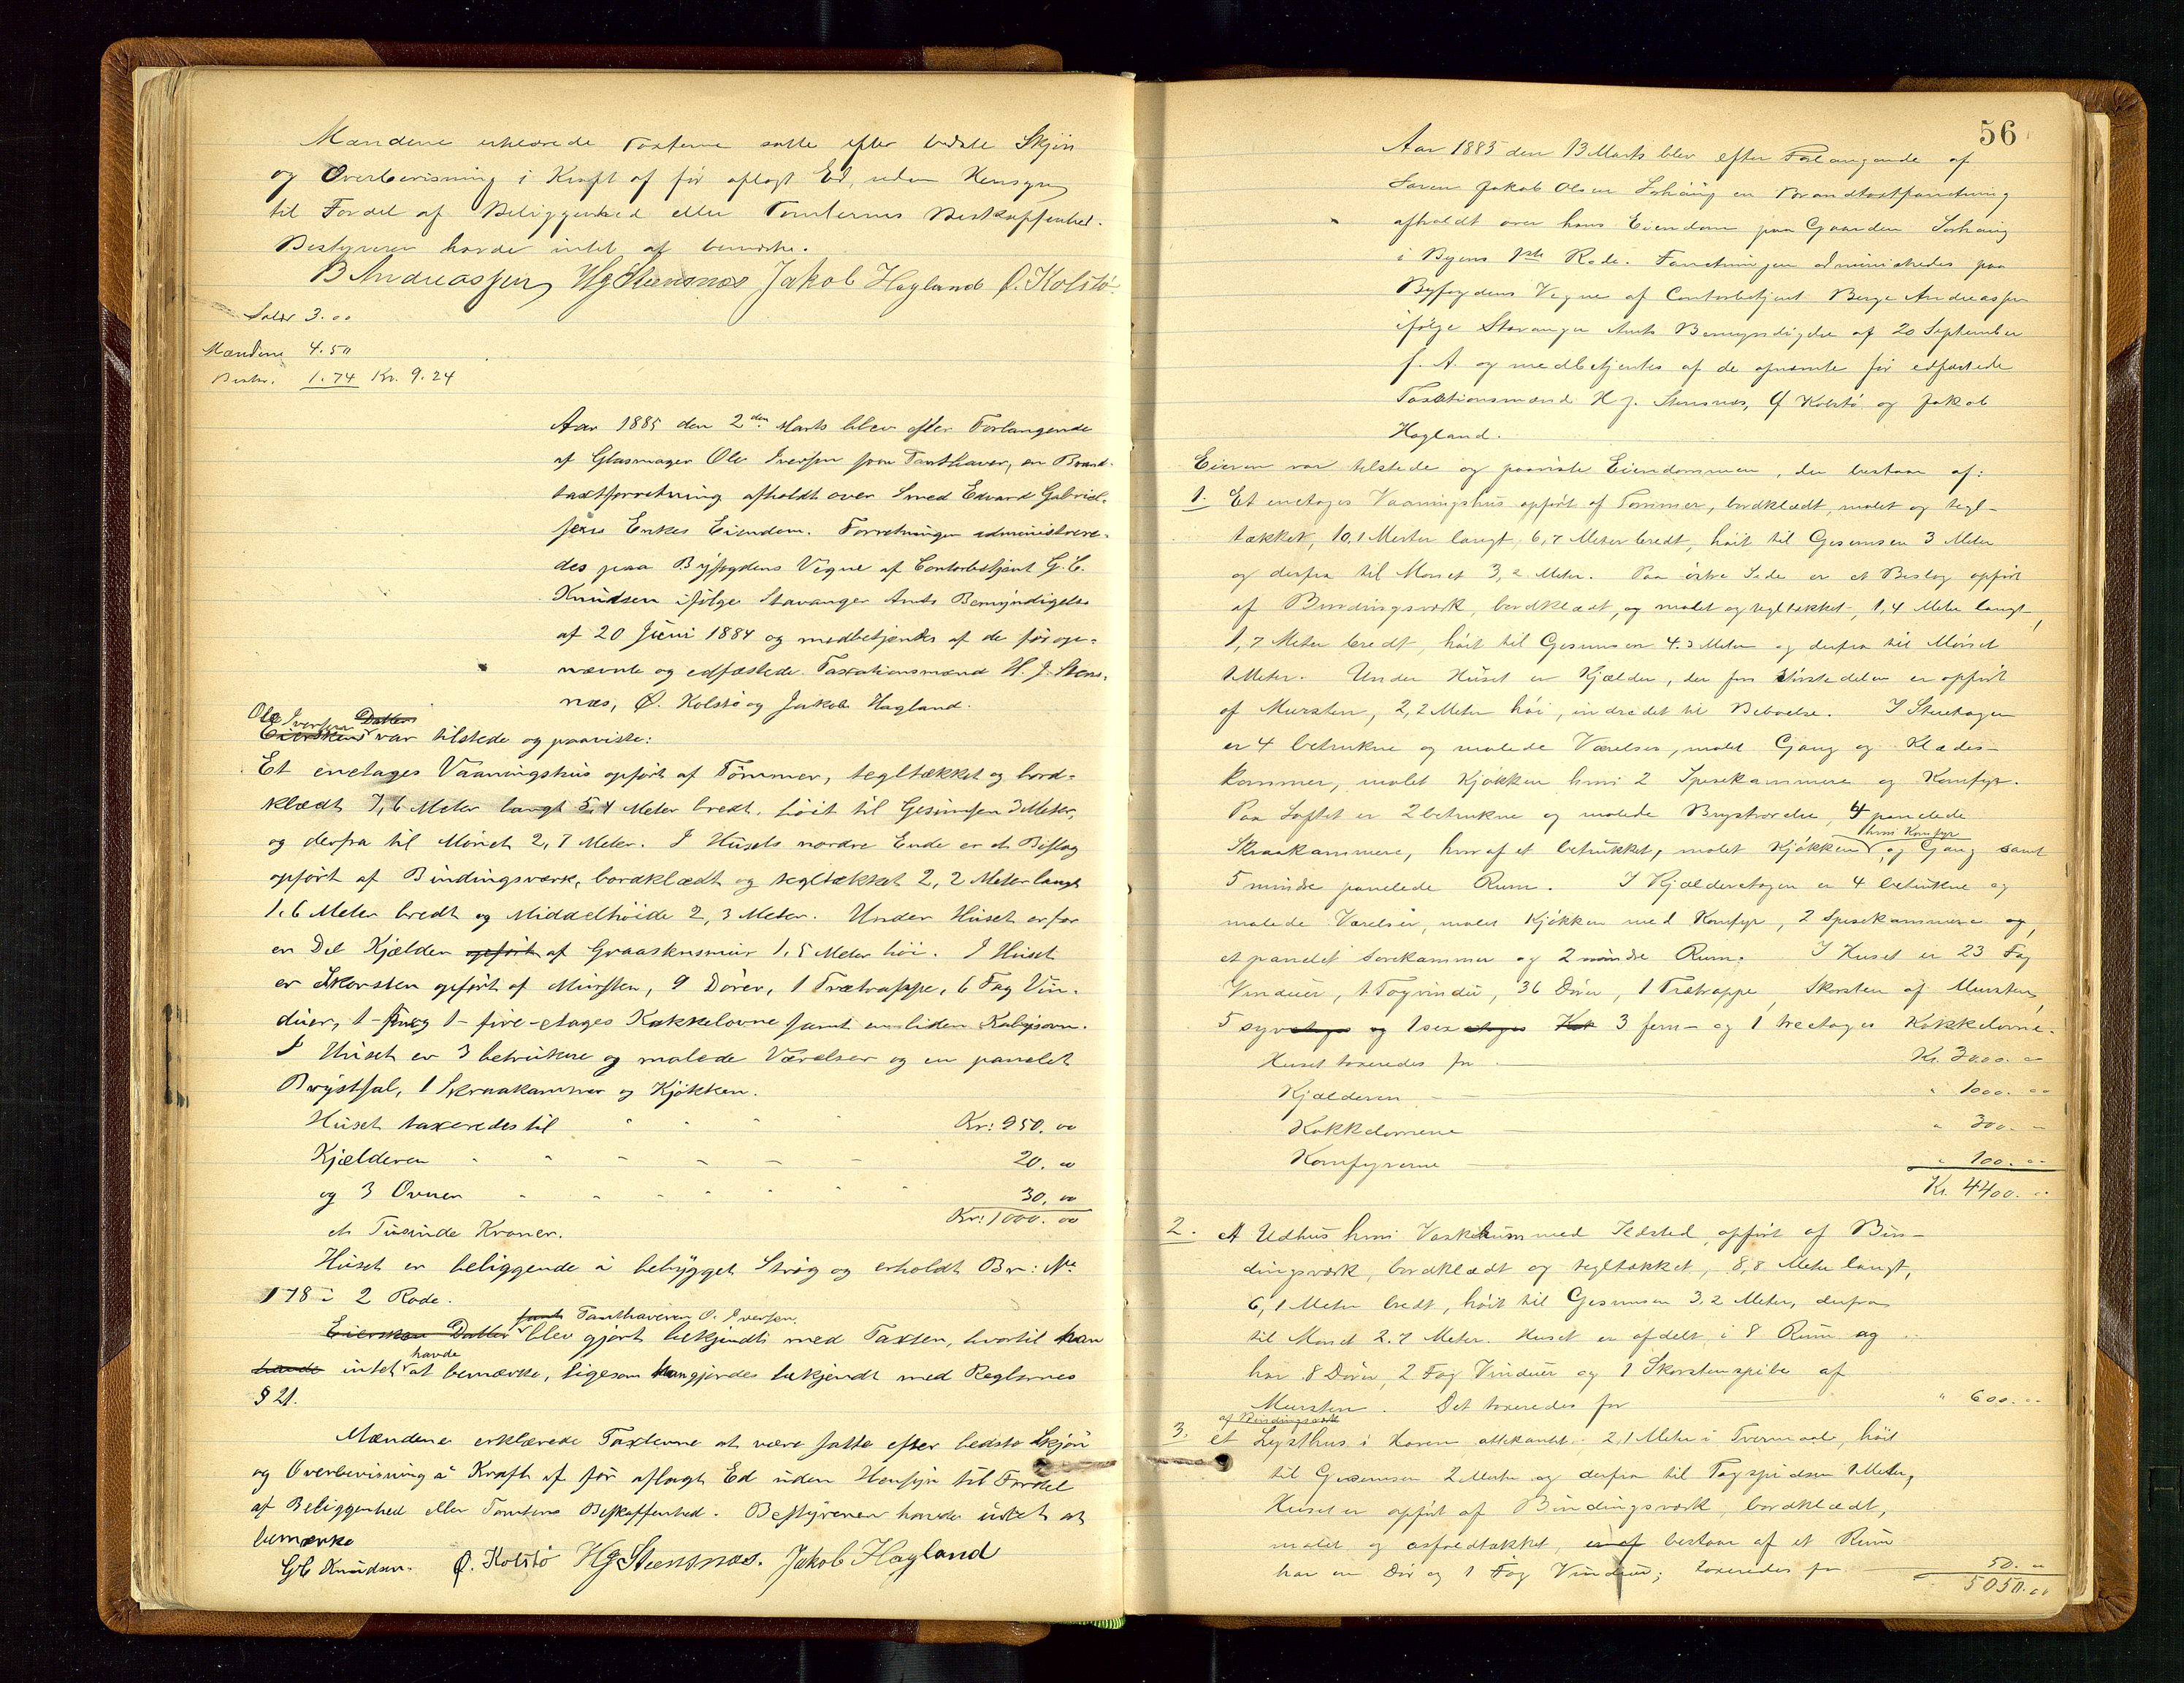 Mændene erklærede Taxterne satte efter bedste Skjøn
og Overbevisning i Kraft af før aflagt Ed, uden Hensyn
til Fordel af Beliggenhed eller Tomternes Beskaffenhed.
Bestyreren havde intet at bemærke.
B Andreassen HgStensnæs Jakob Hagland Ø. Kolstø
3.00
Mændene 4.50
Bestyr. 1.74 Kr. 9.24
Aar 1885 den 2den Marts blev efter Forlangende
af Glasmager Ole Iversen som Panthaver, en Brand-
taxtforretning afholdt over Smed Edvard Gabriel-
sens Enkes Eiendom. Forretningen administrere-
des paa Byfogdens Vegne af Contorbetjent G. C.
Knudsen ifølge Stavanger Amts Bemyndigelse
af 20 Juni 1884 og medbetjentes af de før op-
nævnte og edfæstede Taxationsmænd H. J. Stens-
næs, Ø. Kolstø og Jakob Hagland.
Ole Iversen Datter
Eierskens var tilstede og paaviste:
Et enetages Vaaningshus opført af Tømmer, tegltækket og bord-
klædt 7,6 Meter langt 5,4 Meter bredt, høit til Gesimsen 3 Meter,
og derfra til Mønet 2,7 Meter. I Husets nordre Ende er et Bislag
opført af Bindingsværk, bordklædt og tegltækket 2,2 Meter langt
1.6 Meter bredt og Middelhøide 2,3 Meter. Under Huset er for
en Del Kjælder opført af Graastensmur 1,5 Meter høi. I Huset
er Skorsten opført af Mursten, 9 Døre, 1 Trætrappe, 6 Fag Vin-
duer, 1- og 1- fire-etages Kakkelovne samt en liden Kabysovn.
I Huset er 3 betrukne og malede Værelser og en panelet
Brystsal, 1 Skraakammer og Kjøkken.
Huset taxeredes til Kr: 950.00
Kjælderen 20.00
og 3 Ovnen 30.00
Kr: 1000.00
et Tusinde Kroner.
Huset er beliggende i bebygget Strøg og erholdt Br: No
178 i 2 Rode.
samt Panthaveren O. Iversen
Eiersken Datter blev gjort bekjendt med Taxten, hvortil han
havde
havde intet at bemærke, ligesom han gjordes bekjendt med Reglernes
§ 21.
Mændene erklærede Taxterne at være satte efter bedste Skjøn
og Overbevisning i Kraft af før aflagt Ed uden Hensyn til Fordel
af Beliggenhed eller Tomtens Beskaffenhed. Bestyreren havde intet at
bemærke
G C Knudsen. Ø. Kolstø HgStensnæs. Jakob Hagland
56
Aar 1885 den 13 Marts blev efter Forlangende af
Søren Jakob Olsen Sørhaug en Brandtaxtforretning
afholdt over hans Eiendom paa Gaarden Sørhaug
i Byens 1ste Rode. Forretningen administredes paa
Byfogdens Vegne af Contorbetjent Berge Andreassen
ifølge Stavanger Amts Bemyndigelse af 20 September
f. A. og medbetjentes af de opnævnte før edfæstede
Taxationsmænd H J. Stensnæs, Ø Kolstø og Jakob
Hagland.
Eieren var tilstede og paaviste Eiendommen, der bestaar af:
1. Et enetages Vaaningshus opført af Tømmer, bordklædt, malet og tegl-
tækket, 10,1 Meter langt, 6,7 Meter bredt, høit til Gesimsen 3 Meter
og derfra til Mønet 3,2 Meter. Paa østre Side er et Bislag opført
af Bindingsværk, bordklædt, og malet og tegltækket, 1,4 Meter langt,
1,7 Meter bredt, høit til Gesimsen 4.3 Meter og derfra til Mønet
1 Meter. Under Huset er Kjælder, der for Størstedelen er opført
af Mursten, 2,2 Meter høi, indredet til Beboelse. I Stuetagen
er 4 betrukne og malede Værelser, malet Gang og Klædes-
kammer, malet Kjøkken hvori 2 Spisekammere og Komfyr.
Paa Loftet er 2 betrukne og malede Brystværelser, 4 panelede
hvori Komfyr
Skraakammere, hvoraf et betrukket, malet Kjøkken, og Gang samt
5 mindre panelede Rum. I Kjælderetagen er 4 betrukne og
malede Værelser, malet Kjøkken med Komfyr, 2 Spisekammere og
et panelet Sovekammer og 2 mindre Rum. I Huset er 23 Fag
Vinduer, 1 Tagvindu, 36 Døre, 1 Trætrappe, Skorsten af Mursten,
5 syvetages og 1 sexetages Kak 3 fem- og 1 treetages Kakkelovne.
Huset taxeredes for Kr. 3000.00
Kjælderen " 1000.00
Kakkelovnene " 300.00
Komfyrerne " 100.00
Kr. 4400.00
2. et Udhus hvori Vaskerum med Ildsted, opført af Bin-
dingsværk, bordklædt og tegltækket, 8,8 Meter langt,
6,1 Meter bredt, høit til Gesimsen 3,2 Meter, derfra
til Mønet 2.7 Meter. Huset er afdelt i 8 Rum og
har 8 Døre, 2 Fag Vinduer og 1 Skorstenspibe af
Mursten. Det taxeredes for " 600.00
af Bindingsværk
3. et Lysthus i Haven ottekantet 2,1 Meter i Tvermaal, høit
til Gesimsen 2 Meter og derfra til Tagspidsen 1 Meter,
Huset er opført af Bindingsværk, bordklædt,
malet og asfalttækket, er af bestaar af et Rum
har en Dør og 1 Fag Vinduer; taxeredes for 50.00
5050.00